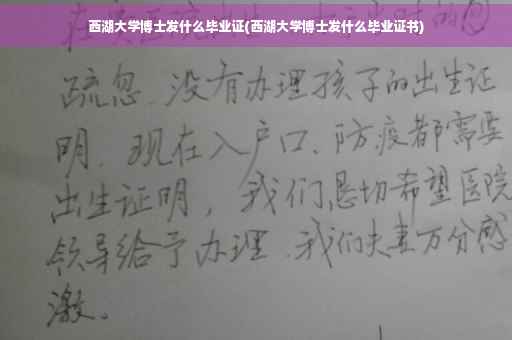 西湖大学博士发什么毕业证(西湖大学博士发什么毕业证书)
疏忽、没有办理孩子的出生证
明、现在入户口、防疫都需要
出生证明，我们恳切希望医院
领导给予办理、我们夫妻万分感
激。